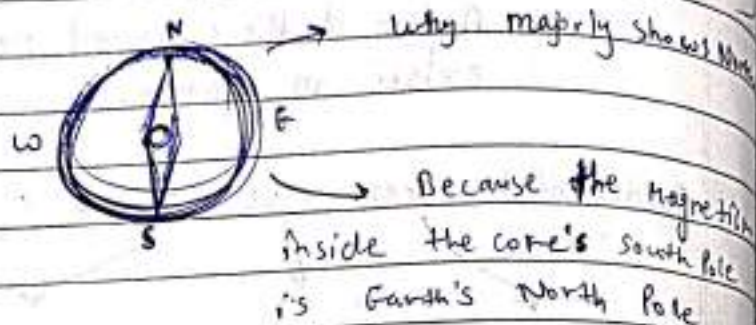 N
Why majorly shows
W
E
S
Because the magnetism
inside the core's south Pole
is Earth's North Pole